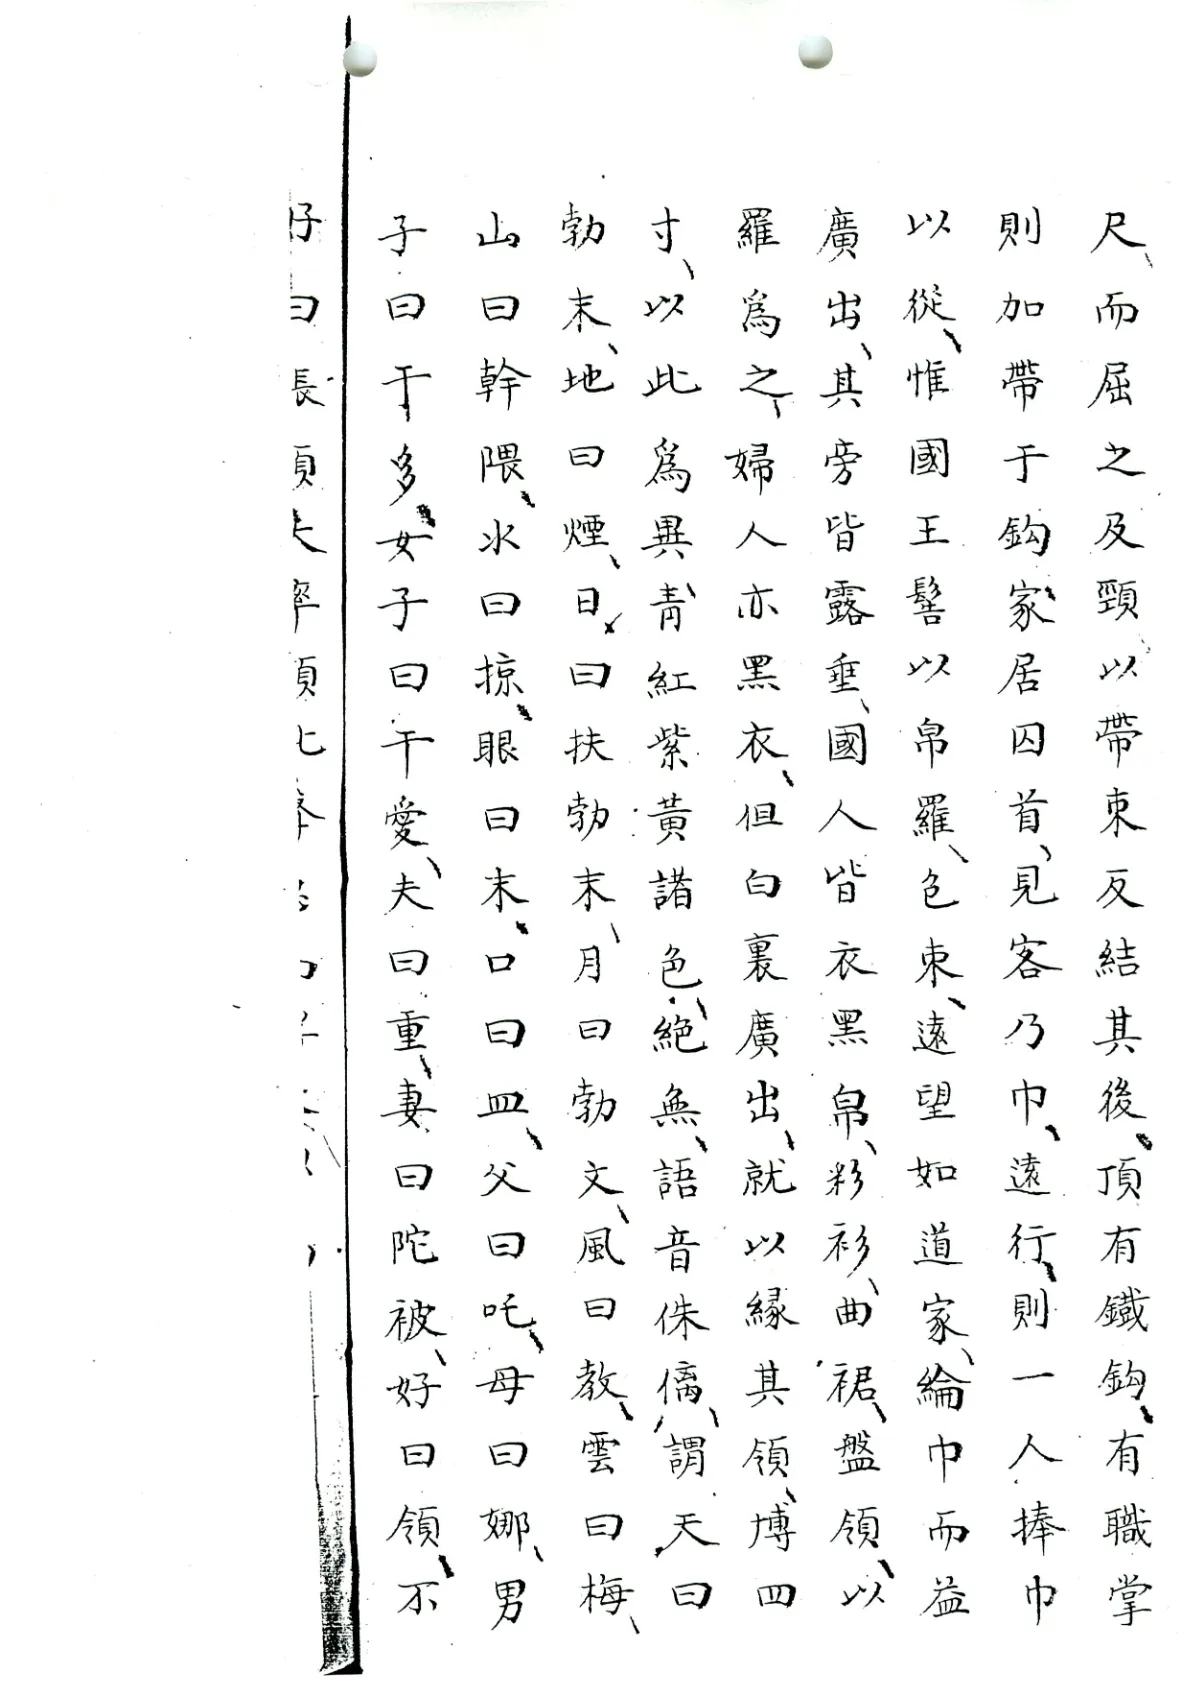 尺、而屈之及頸以帶束反結其後、頂有鐵鈎、有職掌
則加帶于鈎、家居囚首、見客乃巾、遠行、則一人捧巾
以從、惟國王髻以帛羅、色束、遠望如道家、綸巾而益
廣出、其旁皆露垂、國人皆衣黑帛、彩衫、曲裾、盤領、以
羅爲之、婦人亦黑衣、但白裏廣出、就以緣其領、博四
寸、以此爲異、青紅紫黃諸色、絕無、語音侏𠌯、謂天曰
勃末、地曰煙、日、曰扶勃末、月曰勃文、風曰教、雲曰梅、
山曰幹隈、水曰掠、眼曰末、口曰皿、父曰吒、母曰娜、男
子曰丁多、女子曰干愛、夫曰重、妻曰陀被、好曰領、不
好曰長頂大率頂